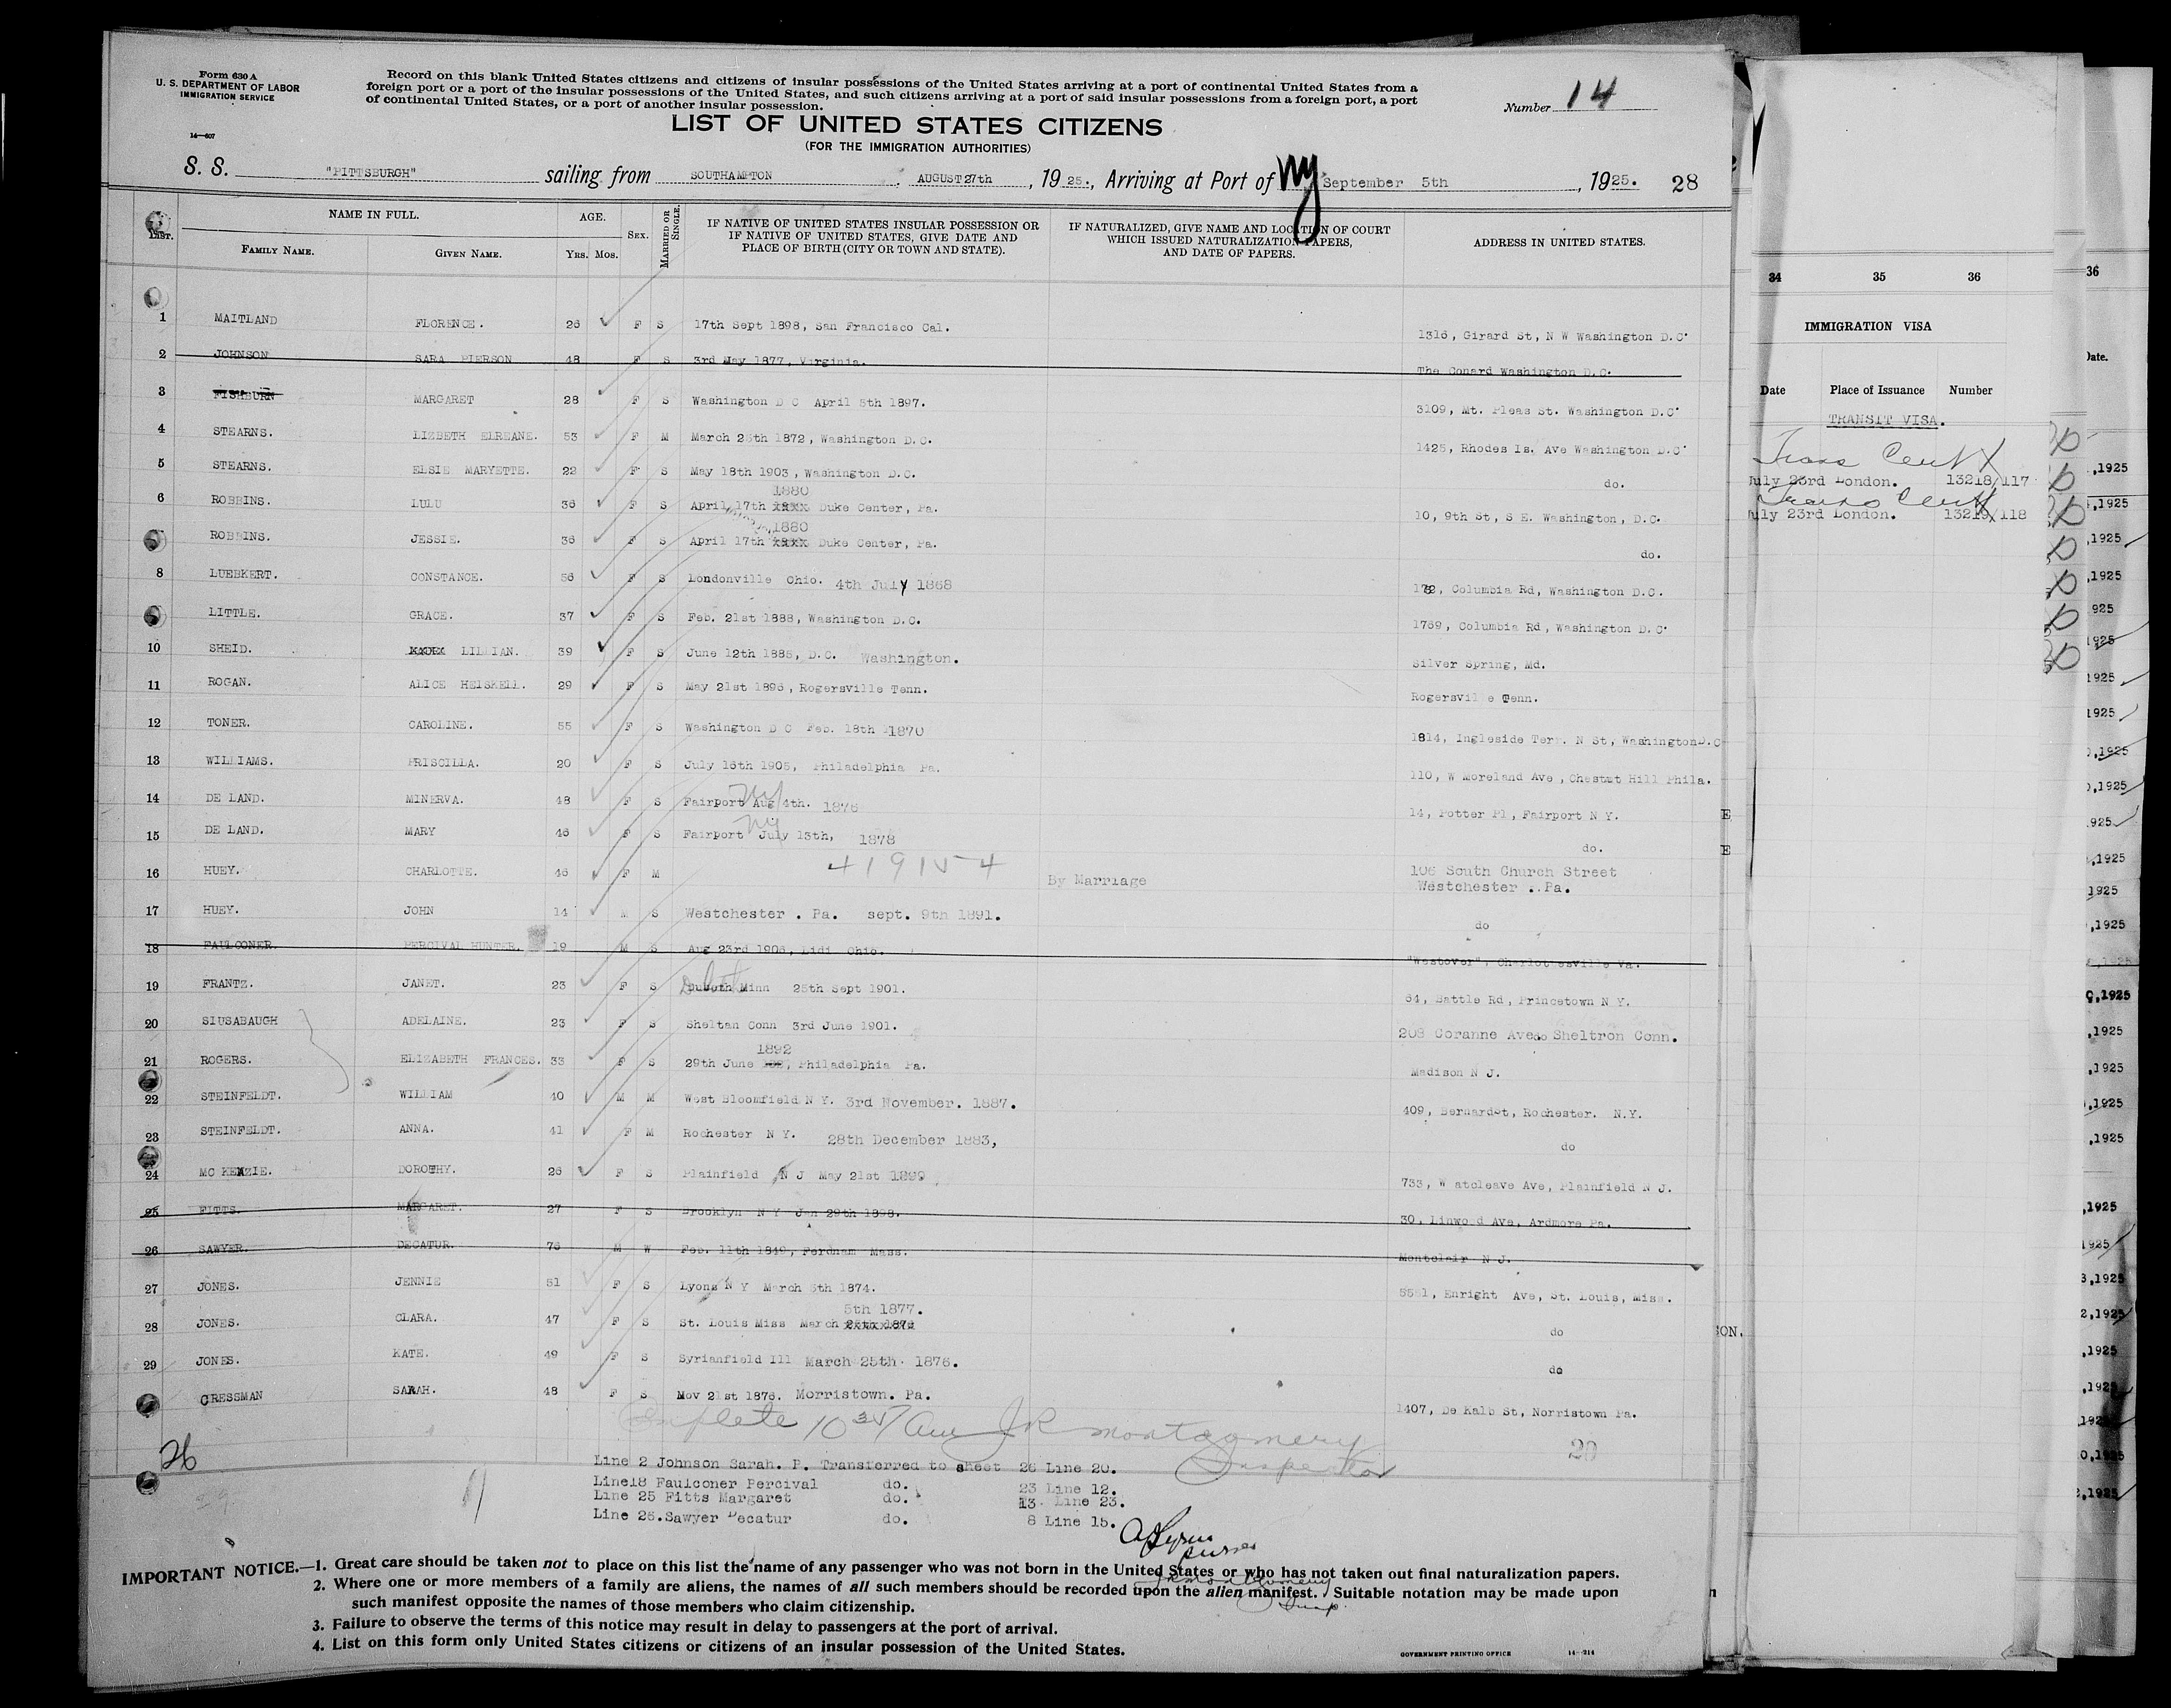 Form 630 A
U. S. DEPARTMENT OF LABOR
IMMIGRATION SERVICE
14—607
Record on this blank United States citizens and citizens of insular possessions of the United States arriving at a port of continental United States from a
foreign port or a port of the insular possessions of the United States, and such citizens arriving at a port of said insular possessions from a foreign port, a port
of continental United States, or a port of another insular possession.
Number 14
LIST OF UNITED STATES CITIZENS
(FOR THE IMMIGRATION AUTHORITIES)
S. S. "PITTSBURGH" sailing from SOUTHAMPTON, AUGUST 27th, 1925., Arriving at Port of NY September 5th, 1925. 28
LIST. NAME IN FULL. AGE. SEX. MARRIED OR SINGLE. IF NATIVE OF UNITED STATES INSULAR POSSESSION OR IF NATIVE OF UNITED STATES, GIVE DATE AND PLACE OF BIRTH (CITY OR TOWN AND STATE). IF NATURALIZED, GIVE NAME AND LOCATION OF COURT WHICH ISSUED NATURALIZATION PAPERS, AND DATE OF PAPERS. ADDRESS IN UNITED STATES.
FAMILY NAME. GIVEN NAME. YRS. MOS.
1 MAITLAND FLORENCE. 26 F S 17th Sept 1898, San Francisco Cal. 1316, Girard St, N W Washington D.C.
2 JOHNSON SARA PIERSON 48 F S 3rd May 1877, Virginia. The Conard Washington D.C.
3 FISHBURN MARGARET 28 F S Washington D C April 5th 1897. 3109, Mt. Pleas St. Washington D.C.
4 STEARNS. LIZBETH ELREANE. 53 F M March 25th 1872, Washington D.C. 1425, Rhodes Is. Ave Washington D.C.
5 STEARNS. ELSIE MARYETTE. 22 F S May 18th 1903, Washington D.C. do.
6 ROBBINS. LULU 36 F S April 17th 1880 Duke Center, Pa. 10, 9th St, S E. Washington, D.C.
ROBBINS. JESSIE. 36 F S April 17th 1880 Duke Center, Pa. do.
8 LUEBKERT. CONSTANCE. 56 F S Londonville Ohio. 4th July 1868 Columbia Rd, Washington D.C.
LITTLE. GRACE. 37 F S Feb. 21st 1888, Washington D.C. 1769, Columbia Rd, Washington D.C.
10 SHEID. LILLIAN. 39 F S June 12th 1885, D.C. Washington. Silver Spring, Md.
11 ROGAN. ALICE HEISKELL. 29 F S May 21st 1896, Rogersville Tenn. Rogersville Tenn.
12 TONER. CAROLINE. 55 F S Washington D C Feb. 18th 1870 1814, Ingleside Terr. N St, Washington D.C
13 WILLIAMS. PRISCILLA. 20 F S July 16th 1905, Philadelphia Pa. 110, W Moreland Ave, Chestnut Hill Phila.
14 DE LAND. MINERVA. 48 F S Fairport NY Aug 4th. 1876 14, Potter Pl, Fairport N Y.
15 DE LAND. MARY 46 F S Fairport NY July 13th, 1878 do.
16 HUEY. CHARLOTTE. 46 F M 419154 By Marriage 106 South Church Street Westchester . Pa.
17 HUEY. JOHN 14 M S Westchester . Pa. sept. 9th 1891. do
18 FAULCONER. PERCIVAL HUNTER. 19 M S Aug 23rd 1906, Lidi Ohio. "Westover", Charlottesville Va.
19 FRANTZ. JANET. 23 F S Duluth Minn 25th Sept 1901. 64, Battle Rd, Princetown N Y.
20 SIUSABAUGH ADELAINE. 23 F S Sheltan Conn 3rd June 1901. 208 Coranne Ave. Sheltron Conn.
21 ROGERS. ELIZABETH FRANCES. 33 F S 29th June 1892, Philadelphia Pa. Madison N J.
22 STEINFELDT. WILLIAM 40 M M West Bloomfield N Y. 3rd November. 1887. 409, Bernardot, Rochester. N.Y.
23 STEINFELDT. ANNA. 41 F M Rochester N Y. 28th December 1883, do
24 MC KENZIE. DOROTHY. 26 F S Plainfield N J May 21st 1899 733, W atcleave Ave, Plainfield N J.
25 FITTS. MARGARET. 27 F S Brooklyn N Y Jan 29th 1898. 30, Linwood Ave, Ardmore Pa.
26 SAWYER. DECATUR. 76 M W Feb. 11th 1849, Perdnam Mass. Montclair N J.
27 JONES. JENNIE 51 F S Lyons N Y March 5th 1874. Enright Ave, St. Louis, Miss.
28 JONES. CLARA. 47 F S St. Louis Miss March 5th 1877. do
29 JONES. KATE. 49 F S Syrianfield Ill March 25th. 1876. do
CRESSMAN SARAH. 48 F S Nov 21st 1876. Morristown. Pa. 1407, De Kalb St, Norristown Pa.
Complete 10 35 AM J R Montgomery
Inspector
26
20
Line 2 Johnson Sarah. P. Transferred to sheet 26 Line 20.
Line18 Faulconer Percival do. 23 Line 12.
Line 25 Fitts Margaret do. 13. Line 23.
Line 26.Sawyer Decatur do. 8 Line 15.
Purser
J R Montgomery
Insp.
IMPORTANT NOTICE.—1. Great care should be taken not to place on this list the name of any passenger who was not born in the United States or who has not taken out final naturalization papers.
2. Where one or more members of a family are aliens, the names of all such members should be recorded upon the alien manifest. Suitable notation may be made upon
such manifest opposite the names of those members who claim citizenship.
3. Failure to observe the terms of this notice may result in delay to passengers at the port of arrival.
4. List on this form only United States citizens or citizens of an insular possession of the United States.
GOVERNMENT PRINTING OFFICE 14—214
34 35 36
IMMIGRATION VISA
Date Place of Issuance Number
TRANSIT VISA.
Trans Cent
July 23rd London. 13218/117
Trans Cent
July 23rd London. 13219/118
36
Date.